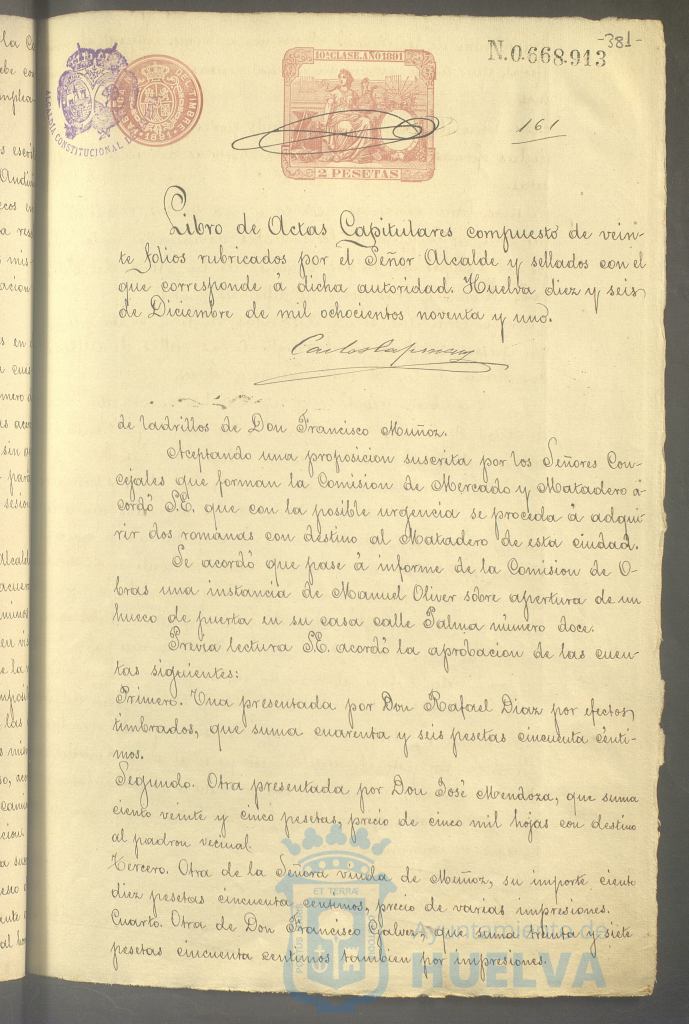 -381-
10ª CLASE. AÑO 1891
N.0.668.913
ALCALDIA CONSTITUCIONAL
161
2 PESETAS
Libro de Actas Capitulares compuesto de vein-
te folios rubricados por el Señor Alcalde y sellados con el
que corresponde á dicha autoridad. Huelva diez y seis
de Diciembre de mil ochocientos noventa y uno.
de ladrillos de Don Francisco Muñoz.
Aceptando una proposicion suscrita por los Señores Con-
cejales que forman la Comision de Mercado y Matadero a-
cordó S.E. que con la posible urgencia se proceda á adqui-
rir dos romanas con destino al Matadero de esta ciudad.
Se acordó que pase á informe de la Comision de O-
bras una instancia de Manuel Oliver sobre apertura de un
hueco de puerta en su casa calle Palma número doce.
Previa lectura S.E. acordó la aprobacion de las cuen-
tas siguientes:
Primero. Una presentada por Don Rafael Diaz por efectos
timbrados, que suma cuarenta y seis pesetas cincuenta cénti-
mos.
Segundo. Otra presentada por Don José Mendoza, que suma
ciento veinte y cinco pesetas, precio de cinco mil hojas con destino
al padron vecinal.
Tercero. Otra de la Señora viuda de Muñoz, su importe ciento
diez pesetas cincuenta centimos, precio de varias impresiones.
Cuarto. Otra de Don Francisco Galvez, que suma treinta y siete
pesetas cincuenta centimos tambien por impresiones.
ET TERRÆ
Ayuntamiento de
HUELVA